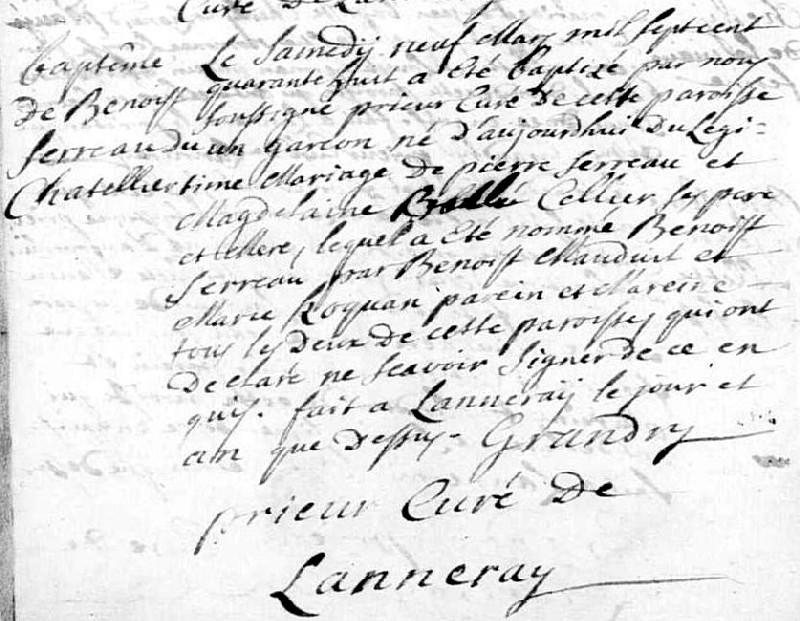 Curé De Lanneray
baptême
de Benoist
Serreau du
Chatellier
Le Samedy neuf Mars mil septcent
quarante huit a été baptizé par nous
soussigné prieur Curé De cette paroisse
un garcon né D'aujourdhui Du Legi=
time Mariage De pierre Serreau et
Magdelaine Cellier ses pere
et Mere, lequel a été nommé Benoist
Serreau par Benoist Mauduit et
Marie Roquan parein et Mareine
tous les Deux De cette paroisse, qui ont
Declaré ne scavoir signer de ce en
quis. fait a Lanneray le jour et
an que Dessus. Grandry
prieur Curé De
Lanneray